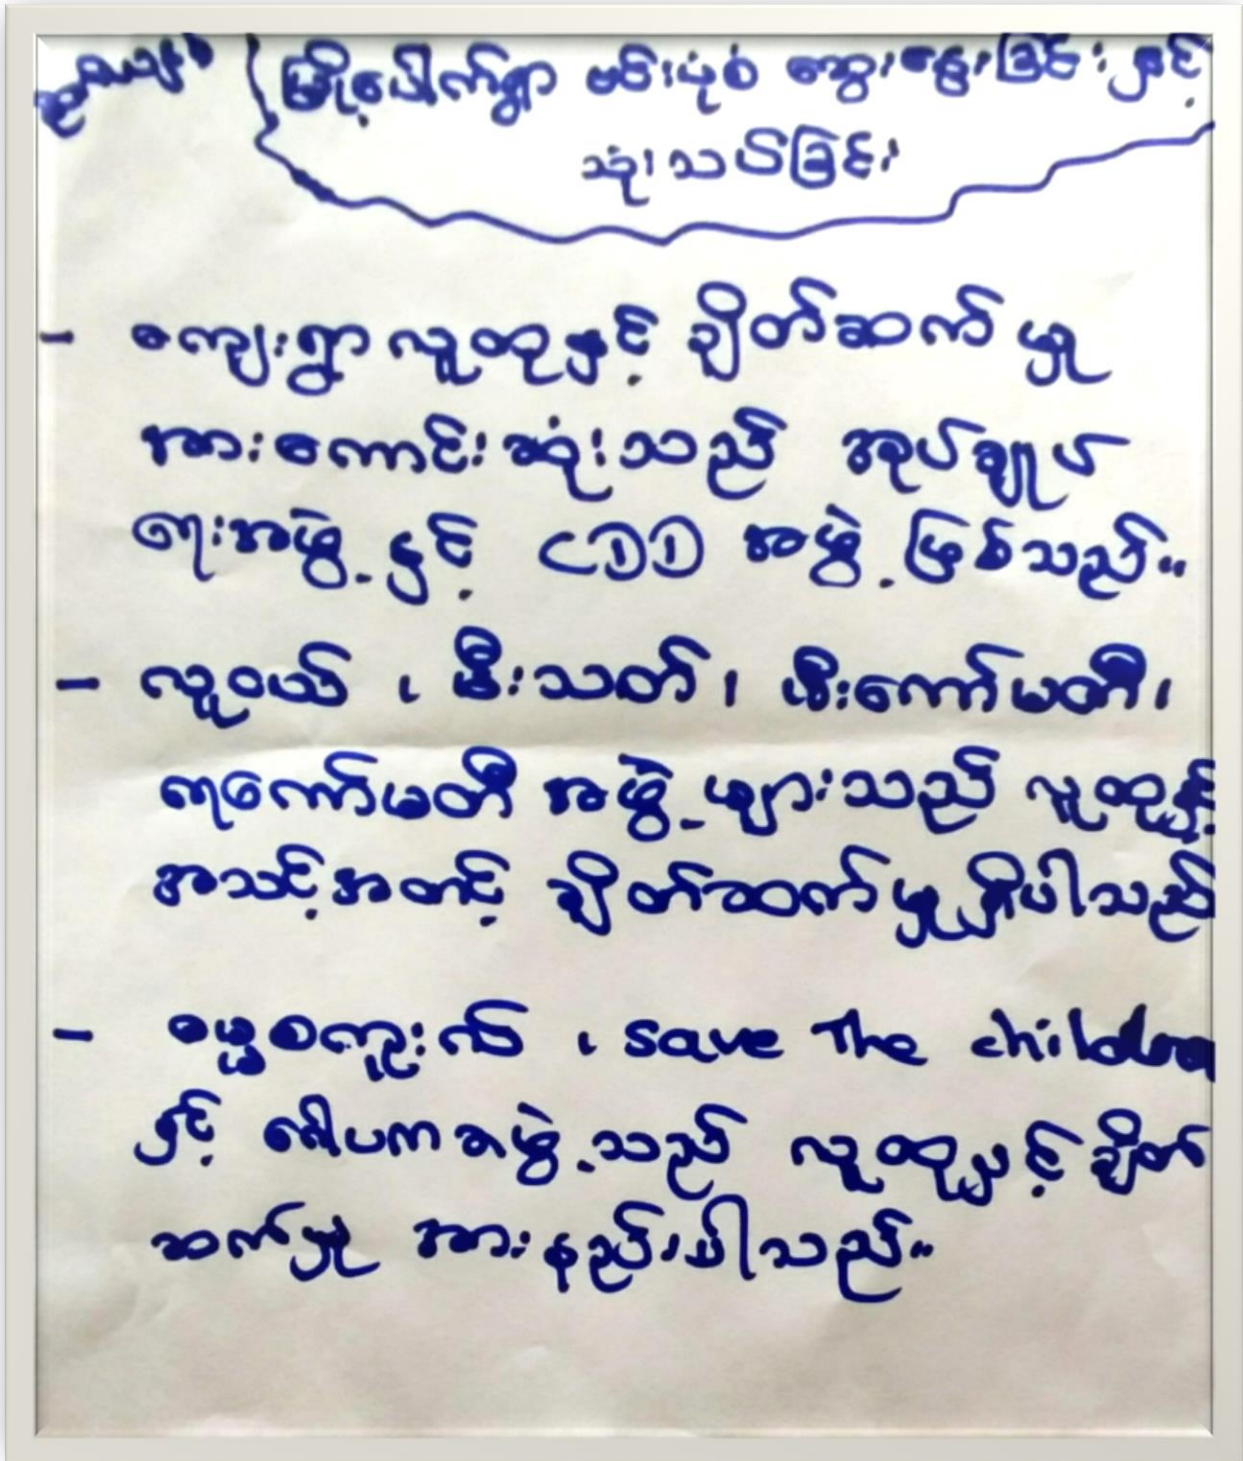 မြို့ပေါက်ရွာ ဗင်းပုံစံ ဆွေးနွေးခြင်း နှင့်
သုံးသပ်ခြင်း
- ကျေးရွာလူထုနှင့် ချိတ်ဆက်မှု
အားကောင်းဆုံးသည် အုပ်ချုပ်
ရေးအဖွဲ့ နှင့် CDD အဖွဲ့ ဖြစ်သည်။
- လူငယ် ၊ မီးသတ်၊ မီးကော်မတီ၊
ရေကော်မတီ အဖွဲ့များသည် လူထုနှင့်
အသင့်အတင့် ချိတ်ဆက်မှုရှိပါသည်
- ၊ Save The children
နှင့် ဂေါပကအဖွဲ့သည် လူထုနှင့် ချိတ်
ဆက်မှု အားနည်းပါသည်။